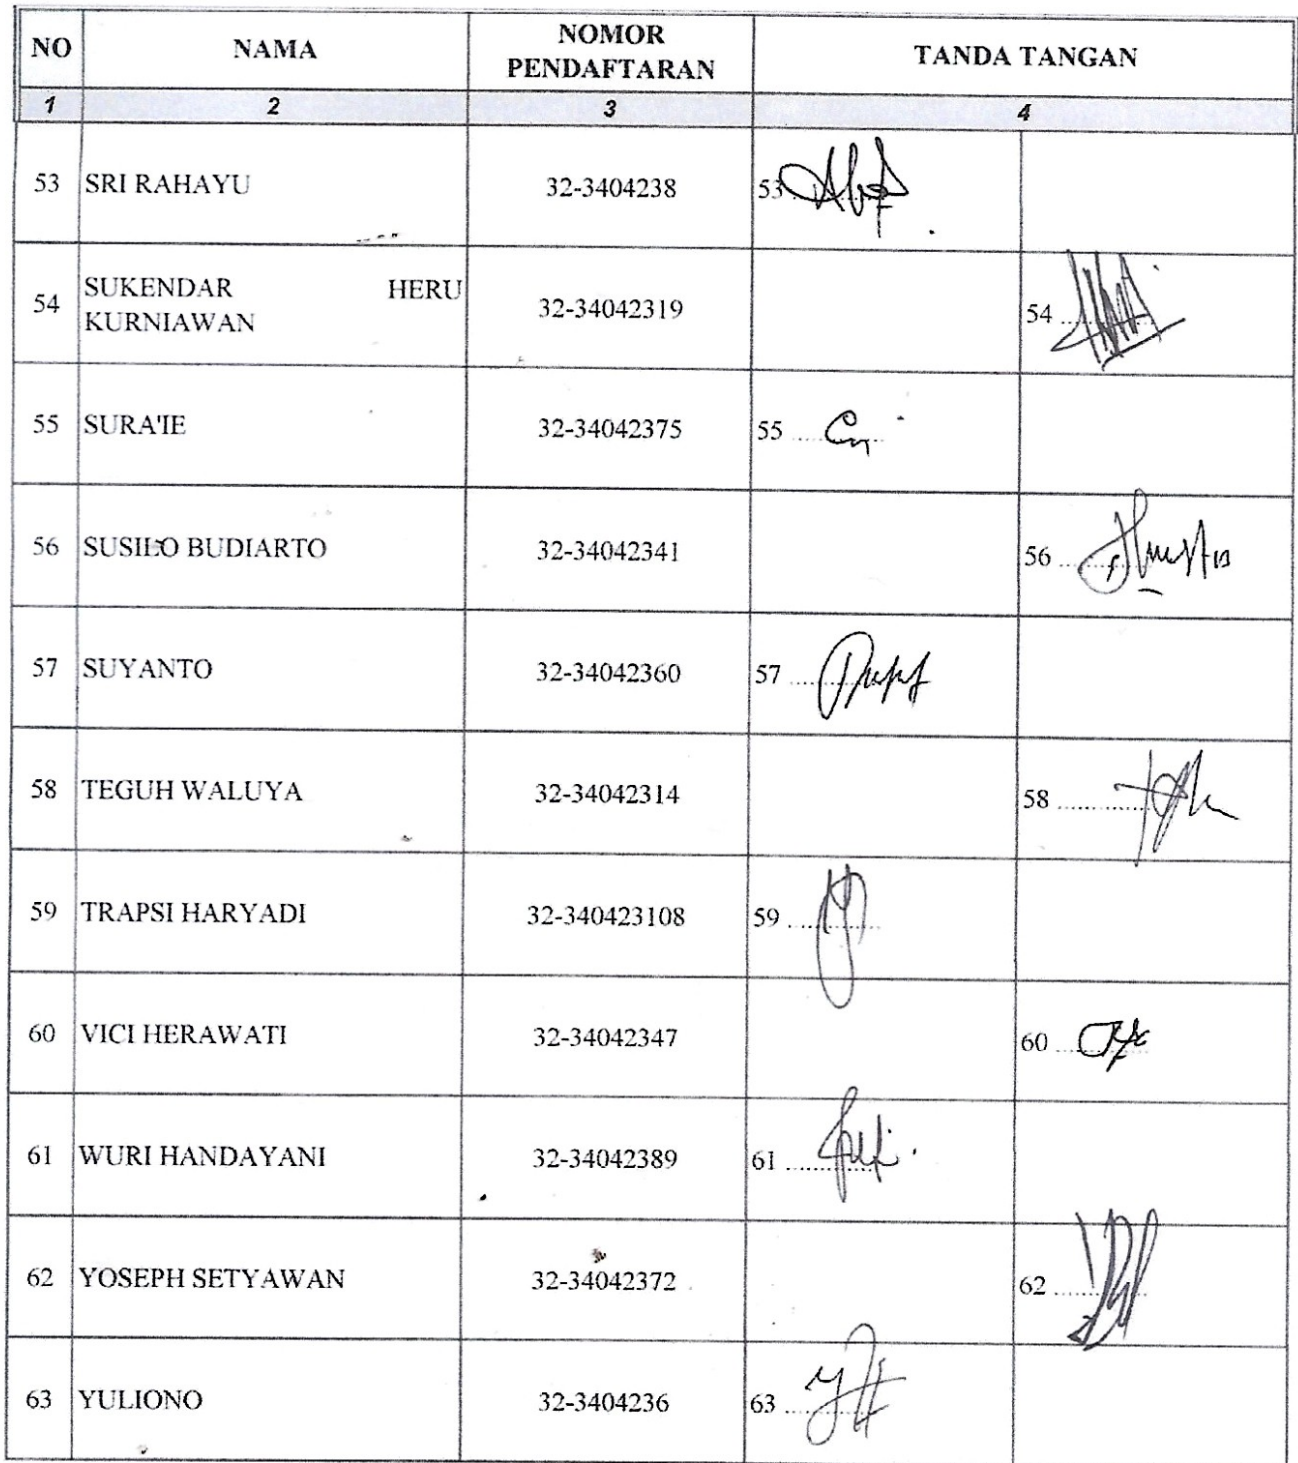 NO NAMA NOMOR PENDAFTARAN TANDA TANGAN
1 2 3 4
53 SRI RAHAYU 32-3404238 53
54 SUKENDAR HERU KURNIAWAN 32-34042319 54
55 SURA'IE 32-34042375 55
56 SUSILO BUDIARTO 32-34042341 56
57 SUYANTO 32-34042360 57
58 TEGUH WALUYA 32-34042314 58
59 TRAPSI HARYADI 32-340423108 59
60 VICI HERAWATI 32-34042347 60
61 WURI HANDAYANI 32-34042389 61
62 YOSEPH SETYAWAN 32-34042372 62
63 YULIONO 32-3404236 63